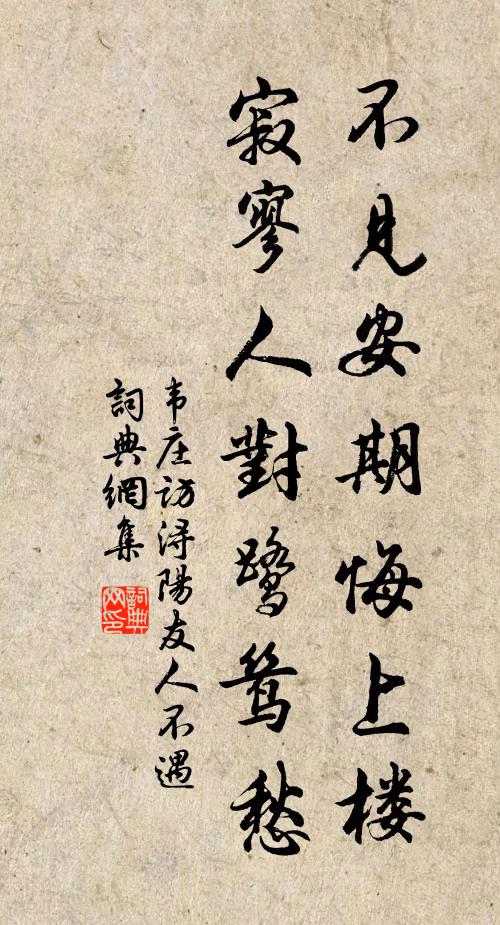 不見安期悔上楼
寂寥人對鷺鸶愁
韦庄访浔陽友人不遇
詞典網集
詞典
网印